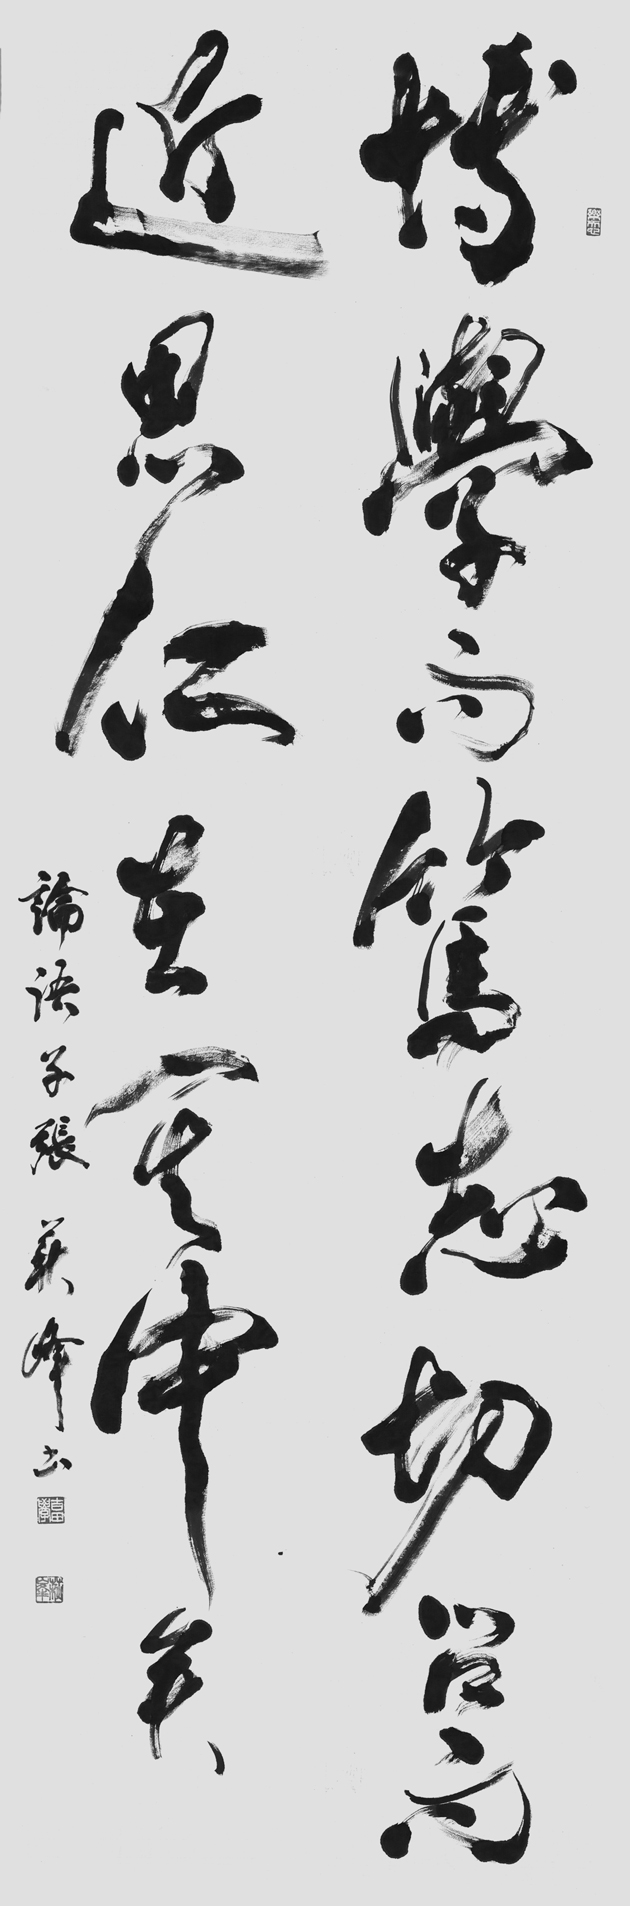 博學而篤志切問而
近思仁在其中矣
論語子張 英峰書